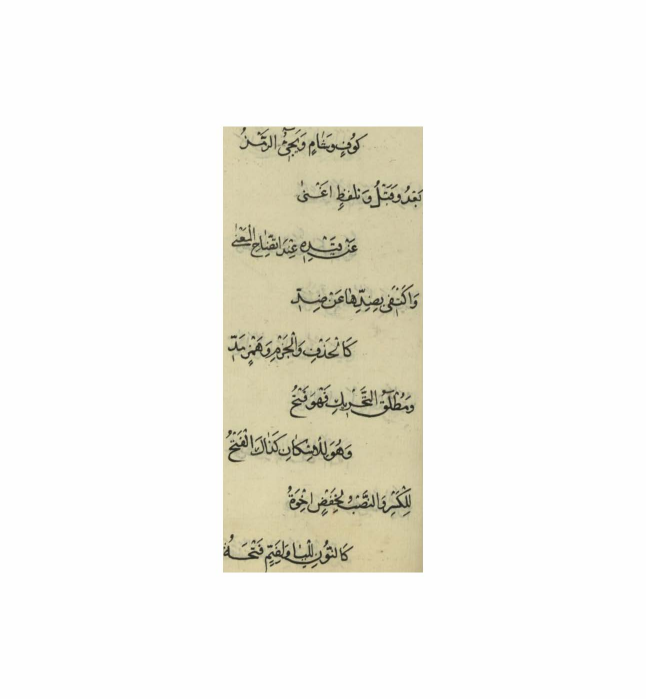 كُوفٍ وَشَامٍ وَيَجِئُ الرَّمْزُ
بَعْدُ وَقَبْلُ وَبْلَفظٍ اغْنىٰ
عَنْ قَيْدِهِ عِنْدَ اتّضَاحِ الْمَعْنٰى
وَاكْتَفى بِضِدِّهَا عَنْ ضِدّ
كَالْحَذْفِ وَالْجَزْمِ وَهَمْزٍ مَدّ
وَمُطْلَقُ التَّحْرِيكِ فَهْوَ فَتْحُ
وَهْوَ لِلْاسْكَانِ كَذَاكَ الْفَتْحُ
لِلْكَسْرِ وَالنَّصْبُ لِخَفْضٍ اخْوَةُ
كَالنّوُنِ لِلْيَا وَلِضَمٍّ فَتْحَةُ